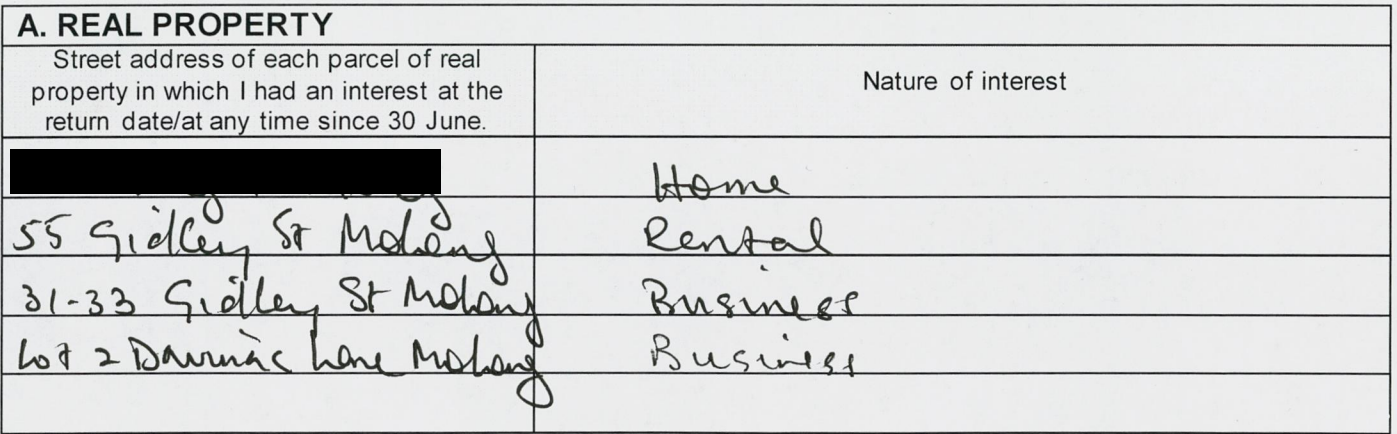 A. REAL PROPERTY
Street address of each parcel of real
property in which I had an interest at the
return date/at any time since 30 June.
Nature of interest
Home
55 Gidley St Molong
Rental
31-33 Gidley St Molong
Business
Lot 2 Lane Molong
Business